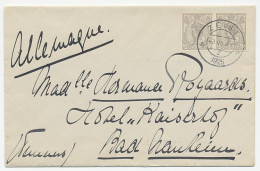 Allemagne.
ZEIST
Mad lle Hermance Royaards
Hôtel "Kaiserhof"
Bad Nauheim
(Taunus)